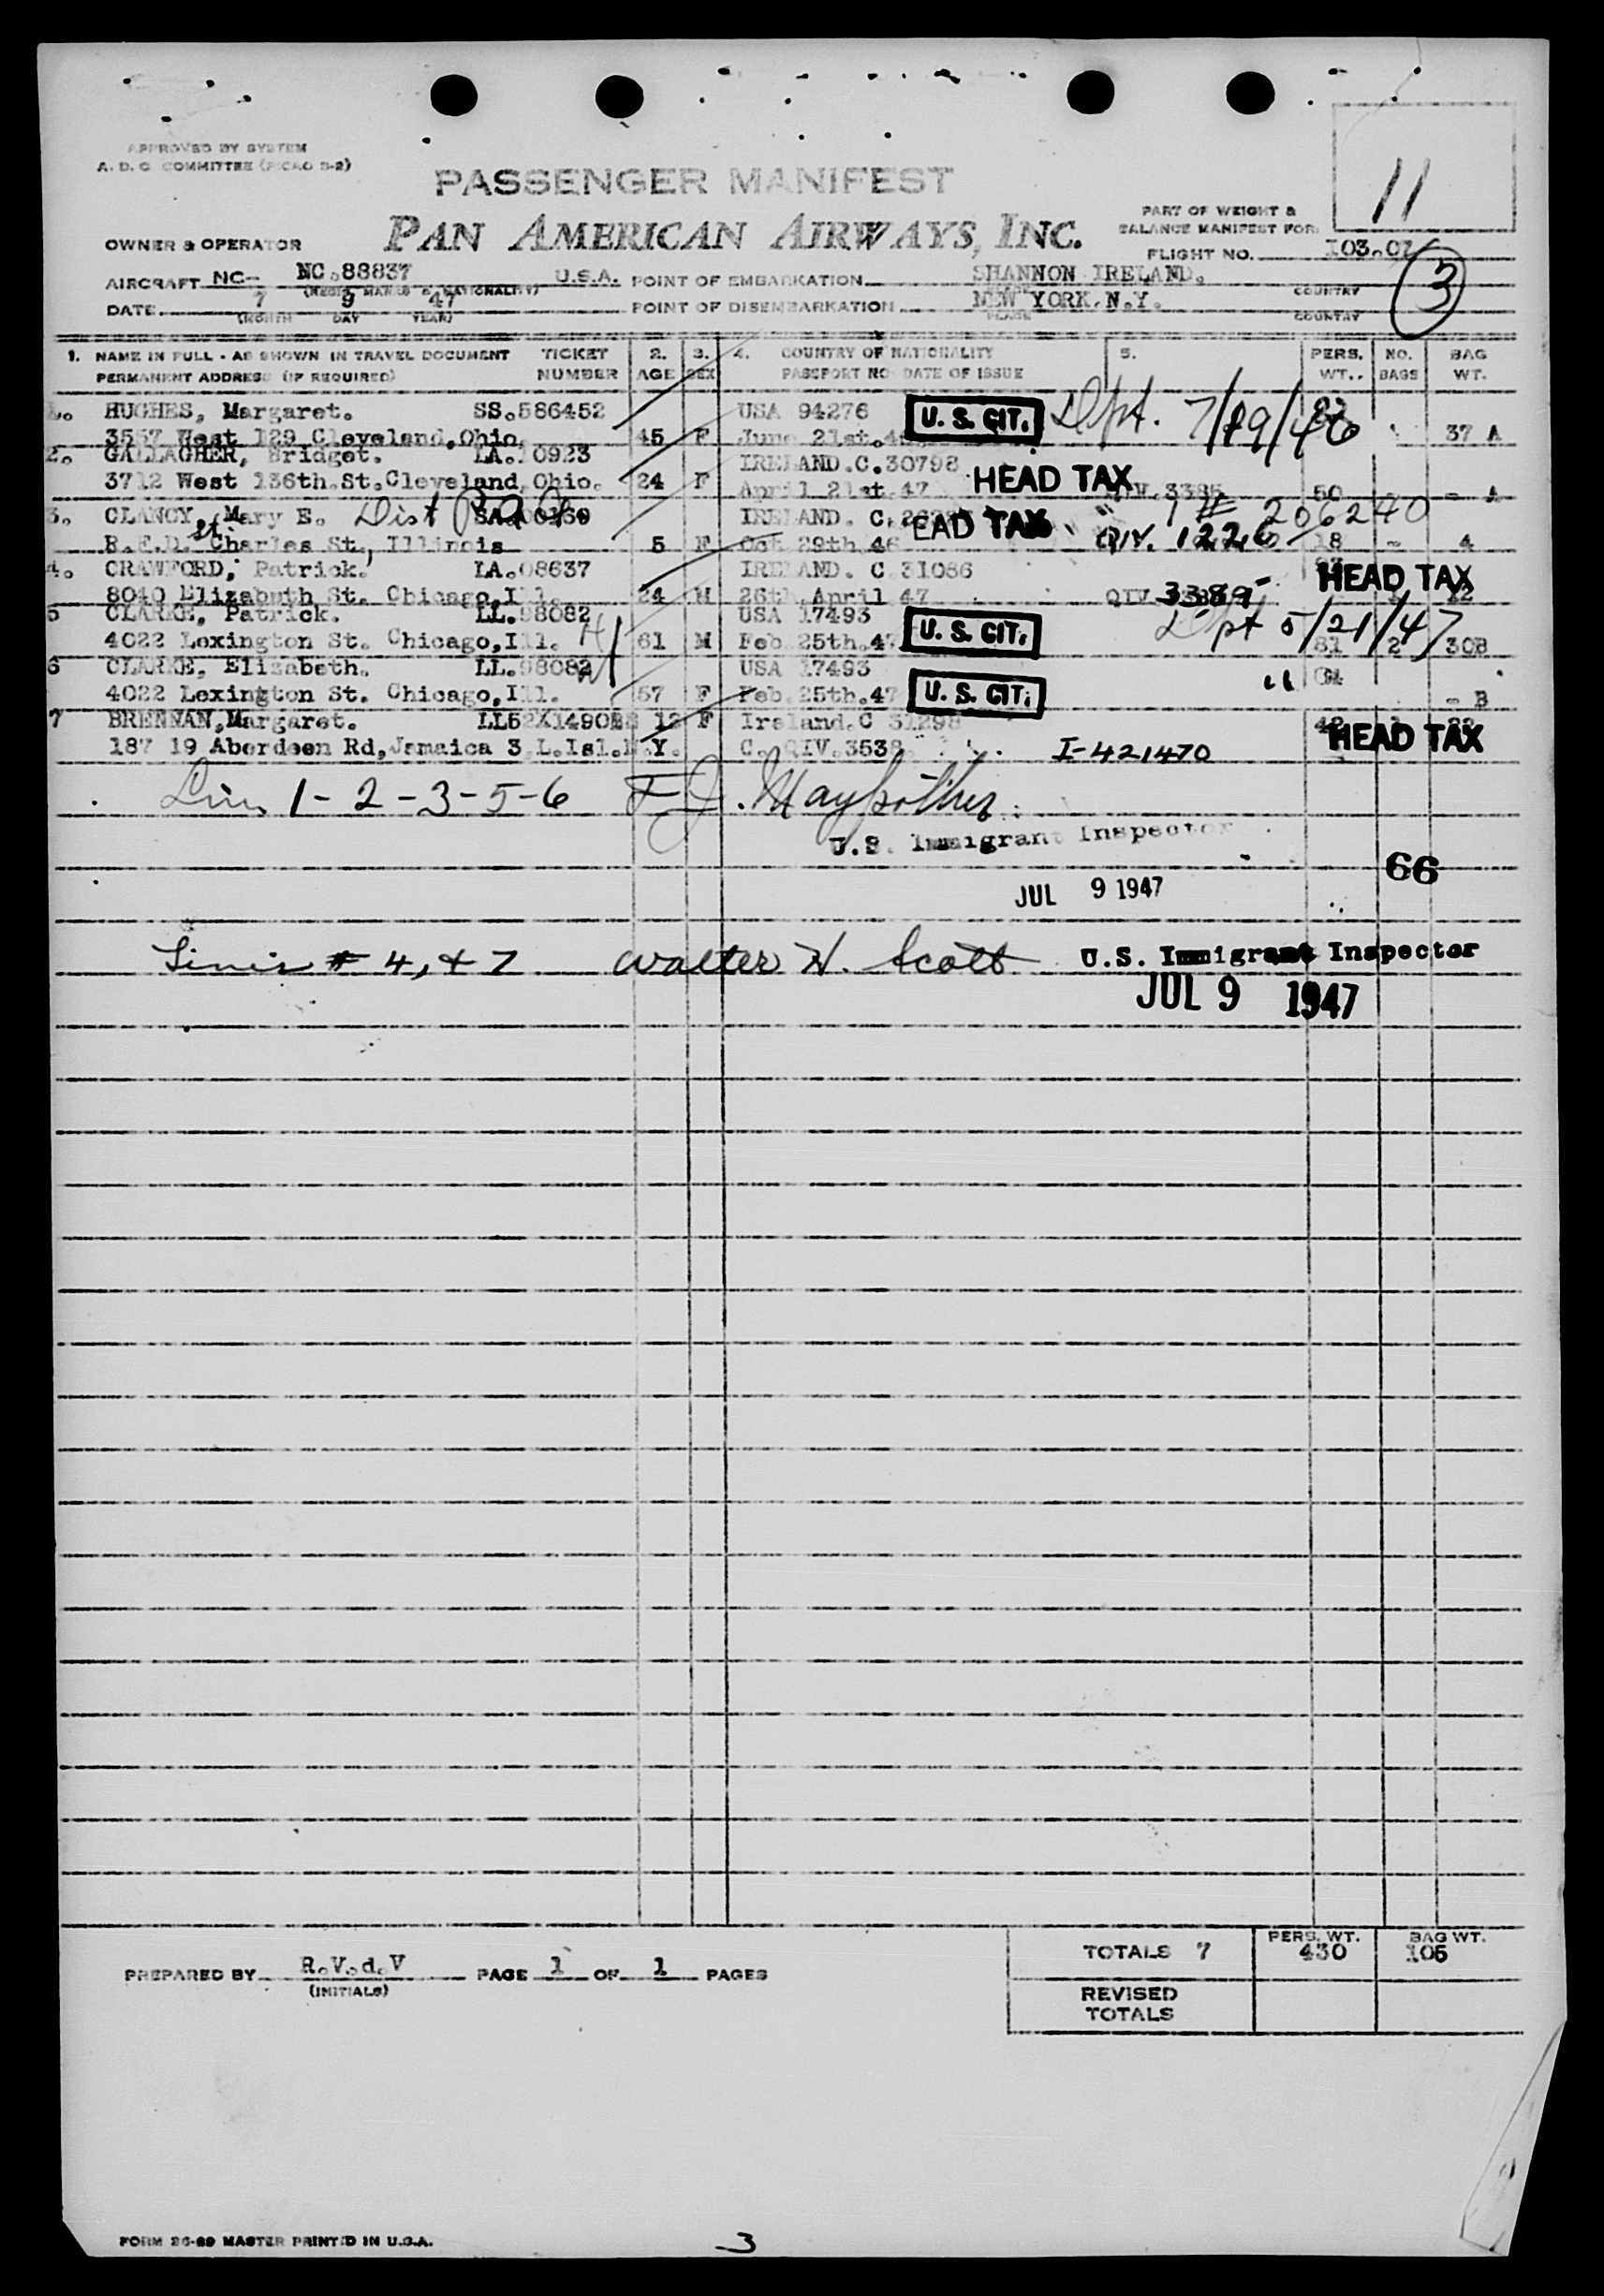 APPROVED BY SYSTEM
A. D. C. COMMITTEE (PICAO S-2)
11
PASSENGER MANIFEST
PAN AMERICAN AIRWAYS, INC.
PART OF WEIGHT &
BALANCE MANIFEST FOR
OWNER & OPERATOR
FLIGHT NO. 103.01
AIRCRAFT NC- NC.88837 U.S.A. POINT OF EMBARKATION SHANNON IRELAND.
(REGIS. MARKS & NATIONALITY) COUNTRY
3
DATE 7 9 47 POINT OF DISEMBARKATION NEW YORK. N.Y.
(MONTH DAY YEAR) PLACE COUNTRY
1. NAME IN FULL - AS SHOWN IN TRAVEL DOCUMENT TICKET 2. 3. 4. COUNTRY OF NATIONALITY 5. PERS. NO. BAG
PERMANENT ADDRESS (IF REQUIRED) NUMBER AGE SEX PASSPORT NO DATE OF ISSUE WT. BAGS WT.
1. HUGHES, Margaret. SS.586452 USA 94276 U.S. CIT. Dpt. 7/19/46
West 129 Cleveland, Ohio, 45 F June 21st. 37 A
2. GALLAGHER, Bridget. LA.10923 IRELAND.C.30798
3712 West 136th.St.Cleveland, Ohio. 24 F April 21st.47 HEAD TAX 3385 50 - A
3. CLANCY, Mary E. Dist IRELAND. C. EAD TAX # 206240
R.F.D. St Charles St., Illinois 5 F Oct 29th 46 QIV. 1226 18 - 4
4. CRAWFORD, Patrick. LA.08637 IRELAND. C 31086 HEAD TAX
8040 Elizabeth St. Chicago, Ill. 24 M 26th April 47 QIV 12
5 CLARKE, Patrick. LL.98082 USA 17493 U.S. CIT. Dpt 5/21/47
4022 Lexington St. Chicago, Ill. 61 M Feb 25th.47 81 2 30B
6 CLARKE, Elizabeth. LL.98082 USA 17493 U.S. CIT. "
4022 Lexington St. Chicago, Ill. 57 F Feb. 25th.47 - B
7 BRENNAN, Margaret. 12 F Ireland.C 31298
187 19 Aberdeen Rd, Jamaica 3 L.Isl.N.Y. C. QIV.3538 I-421470 HEAD TAX
Lines 1-2-3-5-6 F J.
U.S. Immigrant Inspector
66
JUL 9 1947
Lines # 4, & 7 Walter H. Scott U.S. Immigrant Inspector
JUL 9 1947
TOTALS 7 PERS. WT. 430 BAG WT. 105
PREPARED BY R.V.d.V PAGE 1 OF 1 PAGES
(INITIALS)
REVISED
TOTALS
FORM 26-69 MASTER PRINTED IN U.S.A.
3